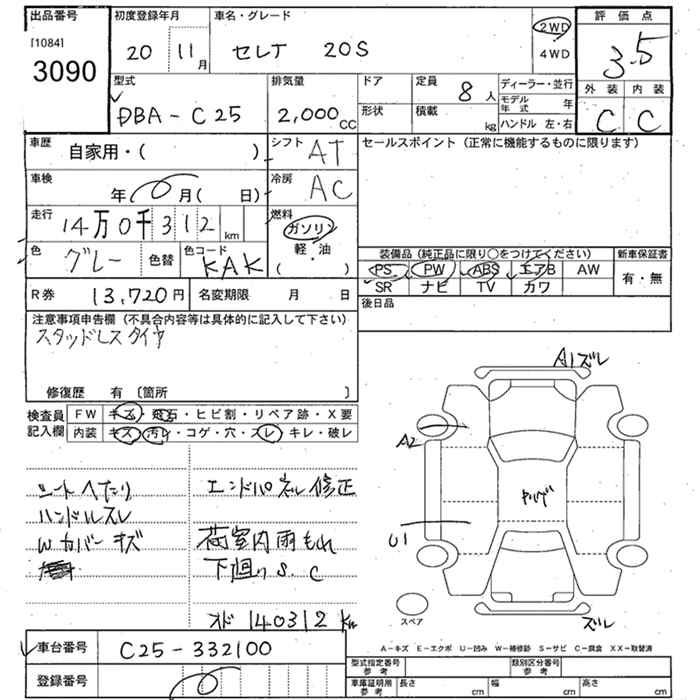 出品番号 初度登録年月 車名・グレード 評価点
[1084] 3090
20 11月 セレナ 20S 2WD 4WD 3.5
外装 内装
C C
型式 排気量 ドア 定員 8人 ディーラー・並行
モデル年式 年
DBA-C25 2,000cc 形状 積載 kg ハンドル 左・右
車歴 自家用・( ) シフト AT セールスポイント (正常に機能するものに限ります)
車検 年 月( 日) 冷房 AC
走行 14万0千312km 燃料 ガソリン
軽・油
( )
色 グレー 色替 色コード KAK
装備品 (純正品に限り○をつけてください) 新車保証書
PS PW ABS エアB AW 有・無
SR ナビ TV カワ
R券 13,720円 名変期限 月 日 後日品
注意事項申告欄 (不具合内容等は具体的に記入して下さい)
スタッドレスタイヤ
修復歴 有 〔箇所 〕
検査員記入欄 FW キズ・飛石・ヒビ割・リペア跡・X要
内装 キズ・汚レ・コゲ・穴・スレ・キレ・破レ
A1ズレ
A2
ヤハゲ
U1
ズレ
スペア
シートヘタリ エンドパネル修正
ハンドルスレ
Wカバーキズ 荷室内雨もれ
下廻りS.C
オド 140312km
車台番号 C25-332100
登録番号
A-キズ E-エクボ U-凹み W-補修跡 S-サビ C-腐食 XX-取替済
型式指定番号 参考 類別区分番号 参考
車庫証明用 参考 長さ cm 幅 cm 高さ cm